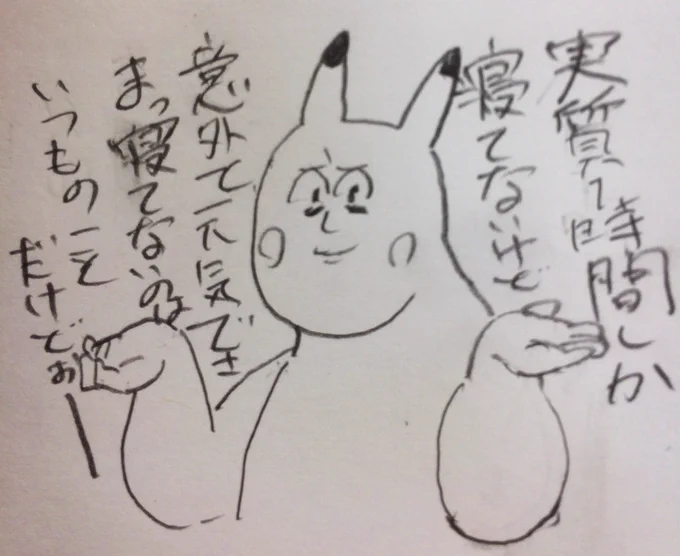 実質1時間しか
寝てないけど
意外て元気でさ
まっ寝てないのは
いつものこと
だけどぉー